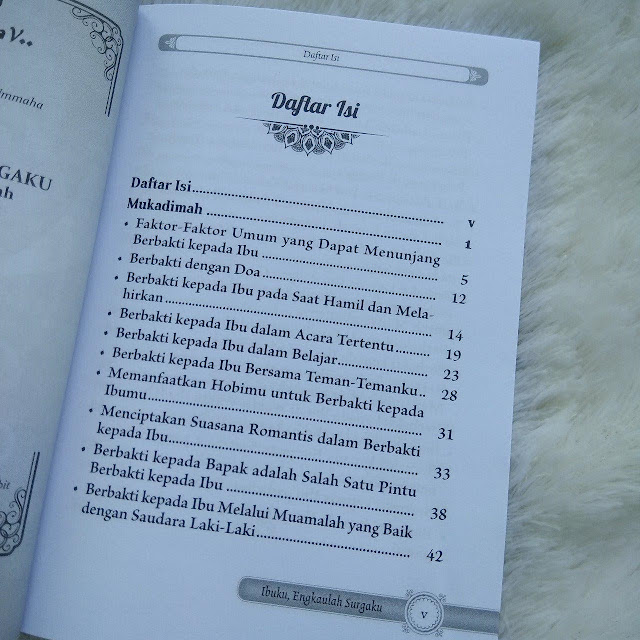 mmaha
GAKU
ah
bit
Daftar Isi
Daftar Isi
Daftar Isi........................................ v
Mukadimah ........................................ 1
• Faktor-Faktor Umum yang Dapat Menunjang
Berbakti kepada Ibu ........................................ 5
• Berbakti dengan Doa ........................................ 12
• Berbakti kepada Ibu pada Saat Hamil dan Mela-
hirkan ........................................ 14
• Berbakti kepada Ibu dalam Acara Tertentu ......... 19
• Berbakti kepada Ibu dalam Belajar........................ 23
• Berbakti kepada Ibu Bersama Teman-Temanku.. 28
• Memanfaatkan Hobimu untuk Berbakti kepada
Ibumu ........................................ 31
• Menciptakan Suasana Romantis dalam Berbakti
kepada Ibu........................................ 33
• Berbakti kepada Bapak adalah Salah Satu Pintu
Berbakti kepada Ibu ........................................ 38
• Berbakti kepada Ibu Melalui Muamalah yang Baik
dengan Saudara Laki-Laki........................................ 42
Ibuku, Engkaulah Surgaku
v